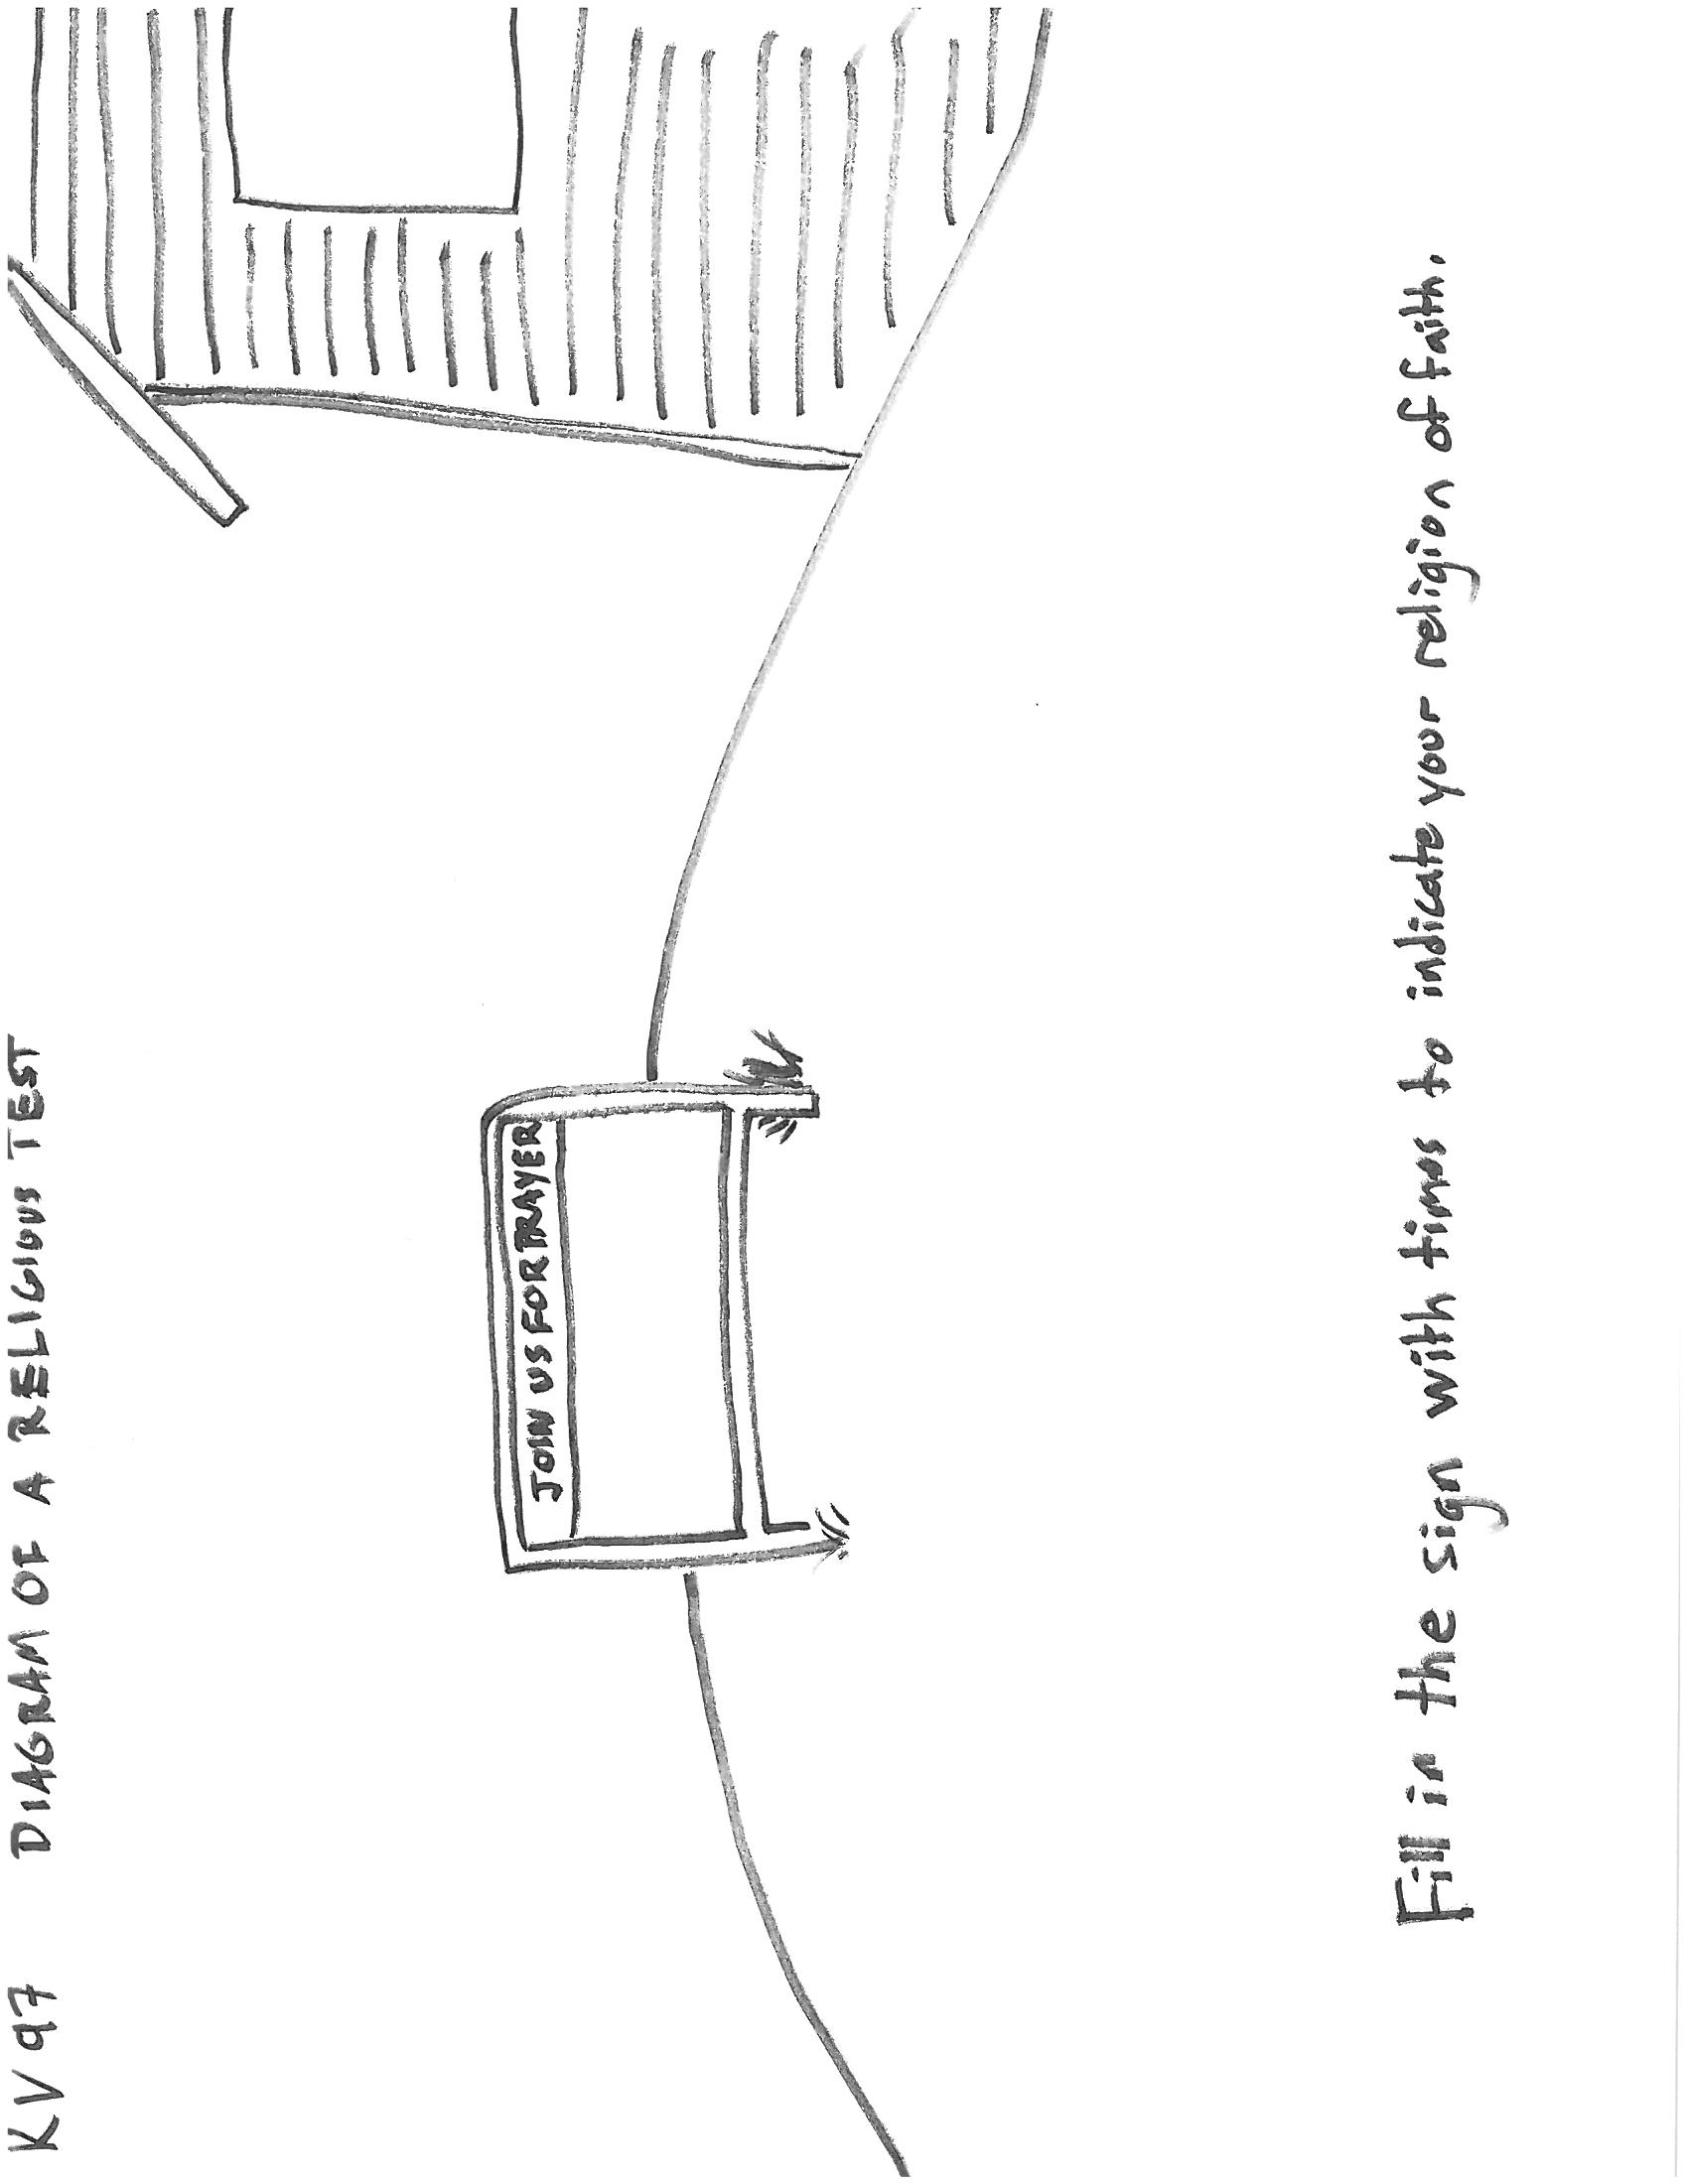 KV97 DIAGRAM OF A RELIGIOUS TEST
JOIN US FOR PRAYER
Fill in the sign with times to indicate your religion of faith.